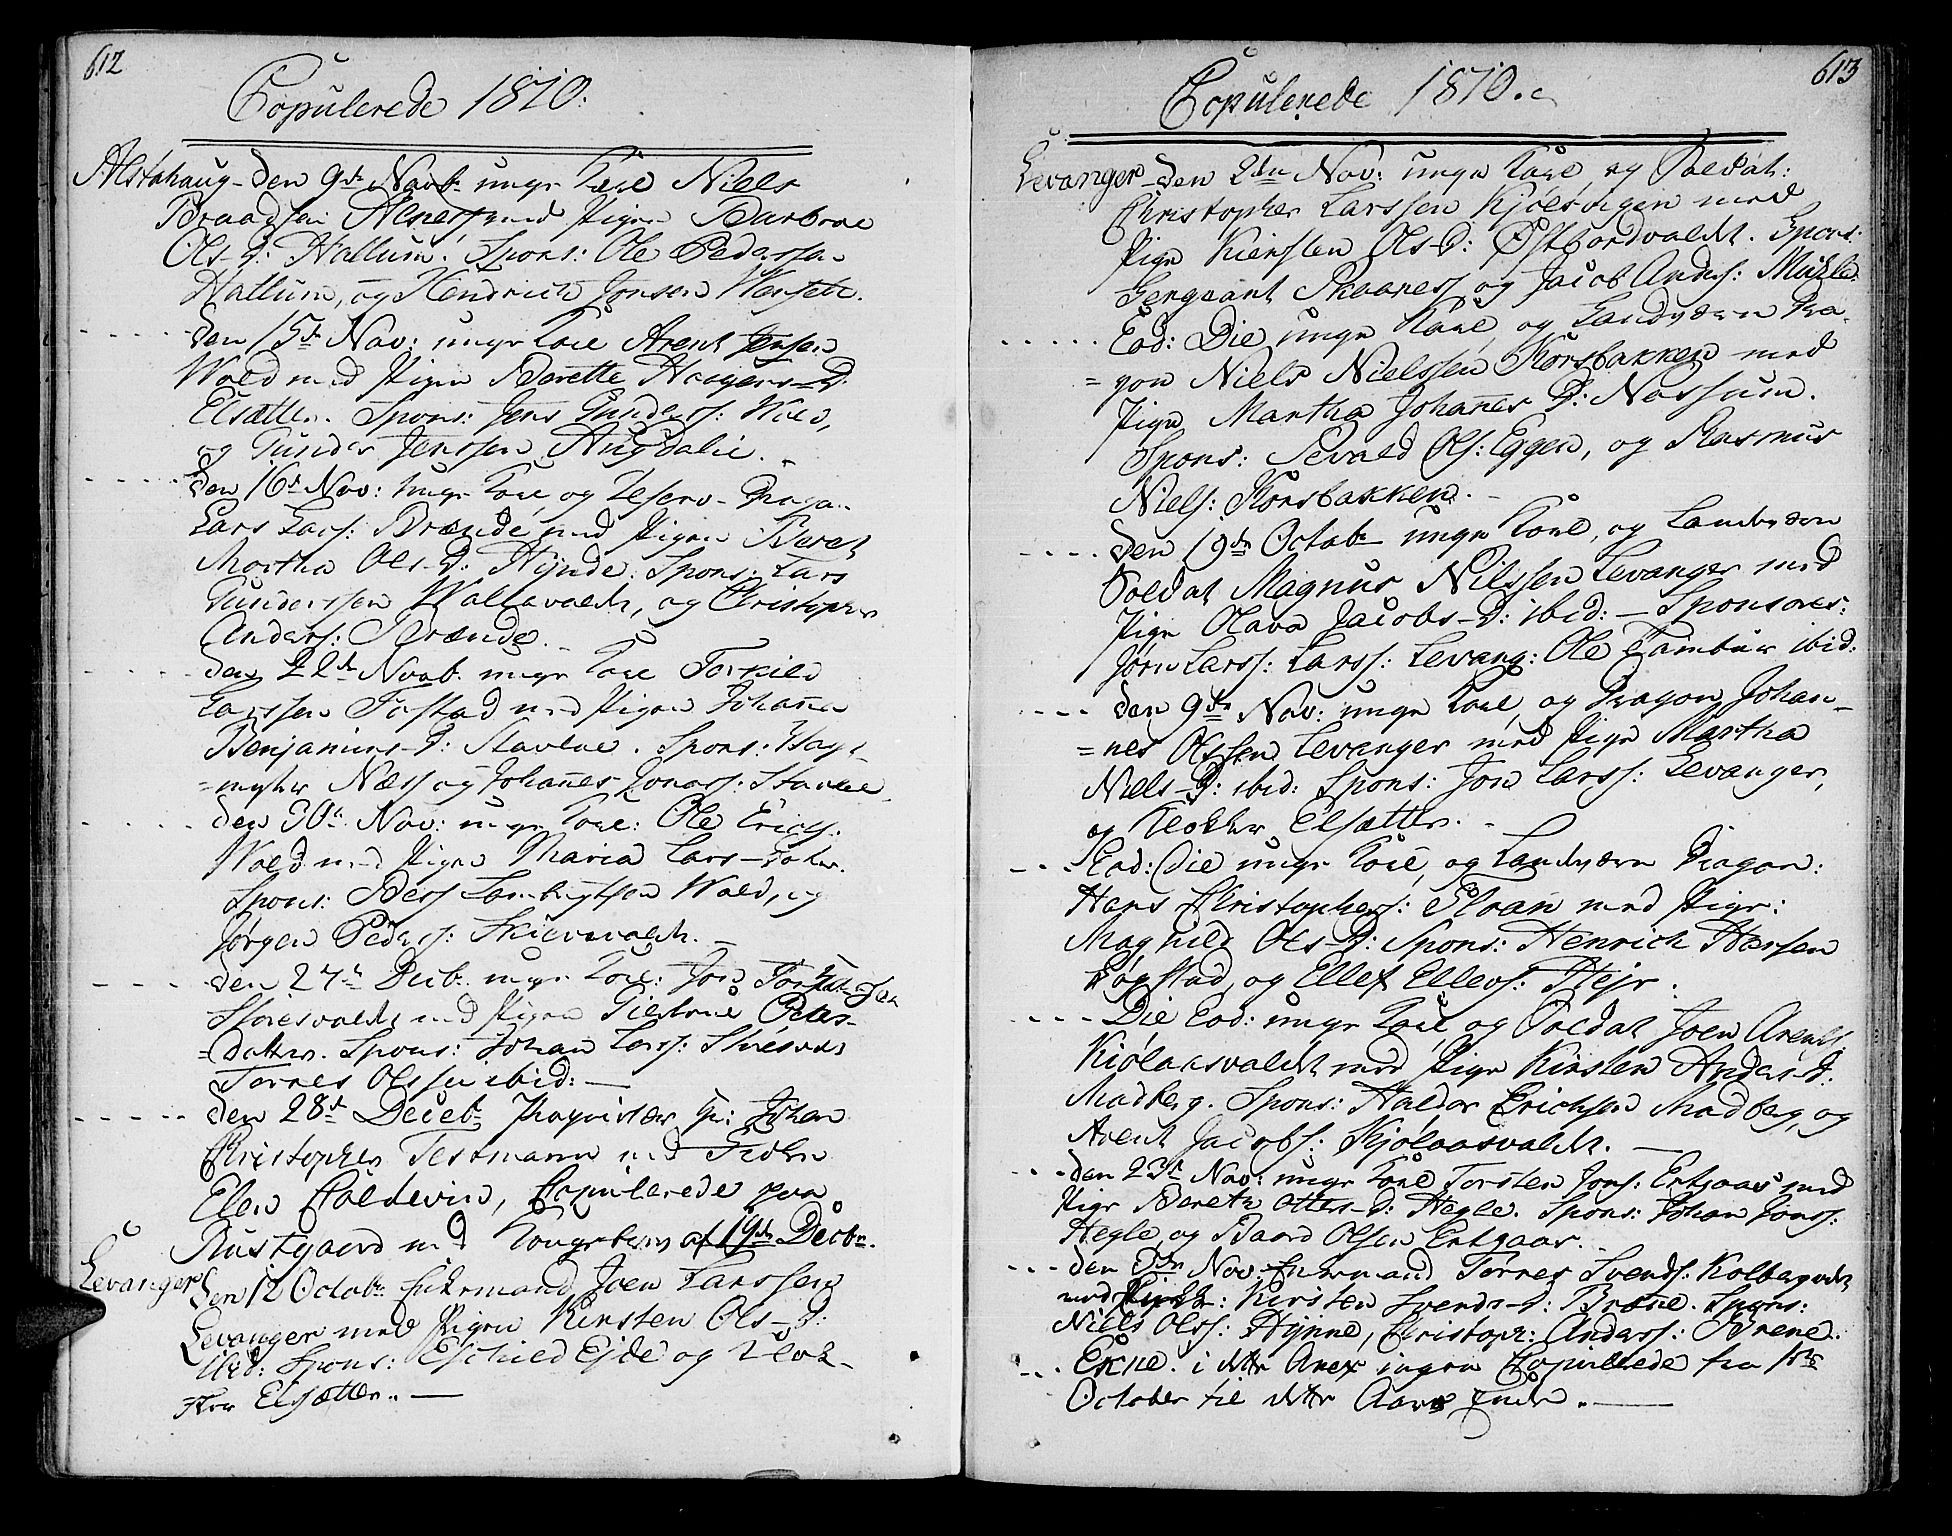 612
Copulerede 1810.
Alstahaug - den 9de Novb. unge Karl Niels
Braadsen Alness med Pigen Barbroe
Ols-D: Hallum. Spons: Ole Pedersen
Hallum, og Hendrich Jonsen
den 15de Nov: unge Karl Arent Jensen
Wold med Pigen Berette Haagens-D.
Elsætter. Spons: Jens Gunders: Wold,
og Gunder Jenssen Augdalie.
den 16de Nov: unge Karl og Reserv-Drago.
Lars Lars: Brænde med Pigen Beret
Martha Ols-D: Hynde. Spons: Lars
Gunderssen Wollavaldt, og Christopher
Anders: Brænde.
den 22de Novb. unge Karl Torkild
Larssen Tostad med Pigen Johanna
Benjamins-D: Stavloe. Spons: Hag-
=mester Næss og Johannes Jonass:
den 30te Nov: unge Karl: Ole Erichs:
Wold med Pigen Maria Lars-Datter.
Spons: Bers Lambrigtsen Wold, og
Jørgen Peders:
den 27de Decb. unge Karl: Jon
med Pigen Peders-
=datter. Spons: Johan Larss:
Tornes Olssen ibid: —
den 28de Deceb. Hr: Johan
Christopher Testmann med
Elen Coldevin, Copulerede paa
Rustgaard med Kongebrev af 19de Decbr.
Levanger Den 12 Octob. Enkemand Joen Larssen
Levanger med Pigen Kirsten Ols-D:
ibid: Spons: Eschild Ejde og Klok-
=ker Elsætter. —
613
Copulerede 1810.
Levanger - den 2den Nov: unge Karl og Soldat:
Christopher Larssen Kjølsvigen med
Pige Kiersten Ols-D: Østbordvaldt. Spons:
Sergeant Skaaness og Jacob Anders: Musle
Eod: Die unge Karl, og Landværn Dra-
=gon Niels Nielssen Korsbakken med
Pige Martha Johannes D: Nossum.
Spons: Sevald Ols: Eggen, og Rasmus
Niels: Korsbakken. -
den 19de Octob. unge Karl, og Landværn
Soldat Magnus Nilssen Levanger med
Pige Olava Jacobs-D: ibid: — Sponsores:
Jørn Larss: Larss: Levang: Ole Tambur ibid:
den 9de Nov: unge Karl, og Dragon Johan-
=nes Olssen Levanger med Pige Martha
Niels-D: ibid: Spons: Jørn Larss: Levanger,
og Klokker Elsætter. -
Eod: Die unge Karl, og Landværn Dragon:
Hans Christophers: Floan med Pige:
Magnild Ols-D: Spons: Henrich Hansen
og Ellef Ellevs: Hejr.
Die Eod: unge Karl og Soldat Joen Arents:
Kiølaasvaldt med Pige Kirsten Anders-D:
Madberg. Spons: Haldor Erichsen Madberg, og
Arent Jacobs: Kjølaasvaldt. —
den 23de Nov: unge Karl Torsten Jons: Ertgaas med
Pige Bereth Ottes-D: Hegle. Spons: Johan Jonss:
Hegle, og Baard Olsen Ertgaas.
den Nov: Enkemand Tornes Svends:
med Kirsten Svends-D: Bræne. Spons:
Niels Olss: Hynne, Christoph: Anderss: Brene.
Ekne. i dette Anex ingen Copulerede fra 1ste
October til dette Aars Ende. —